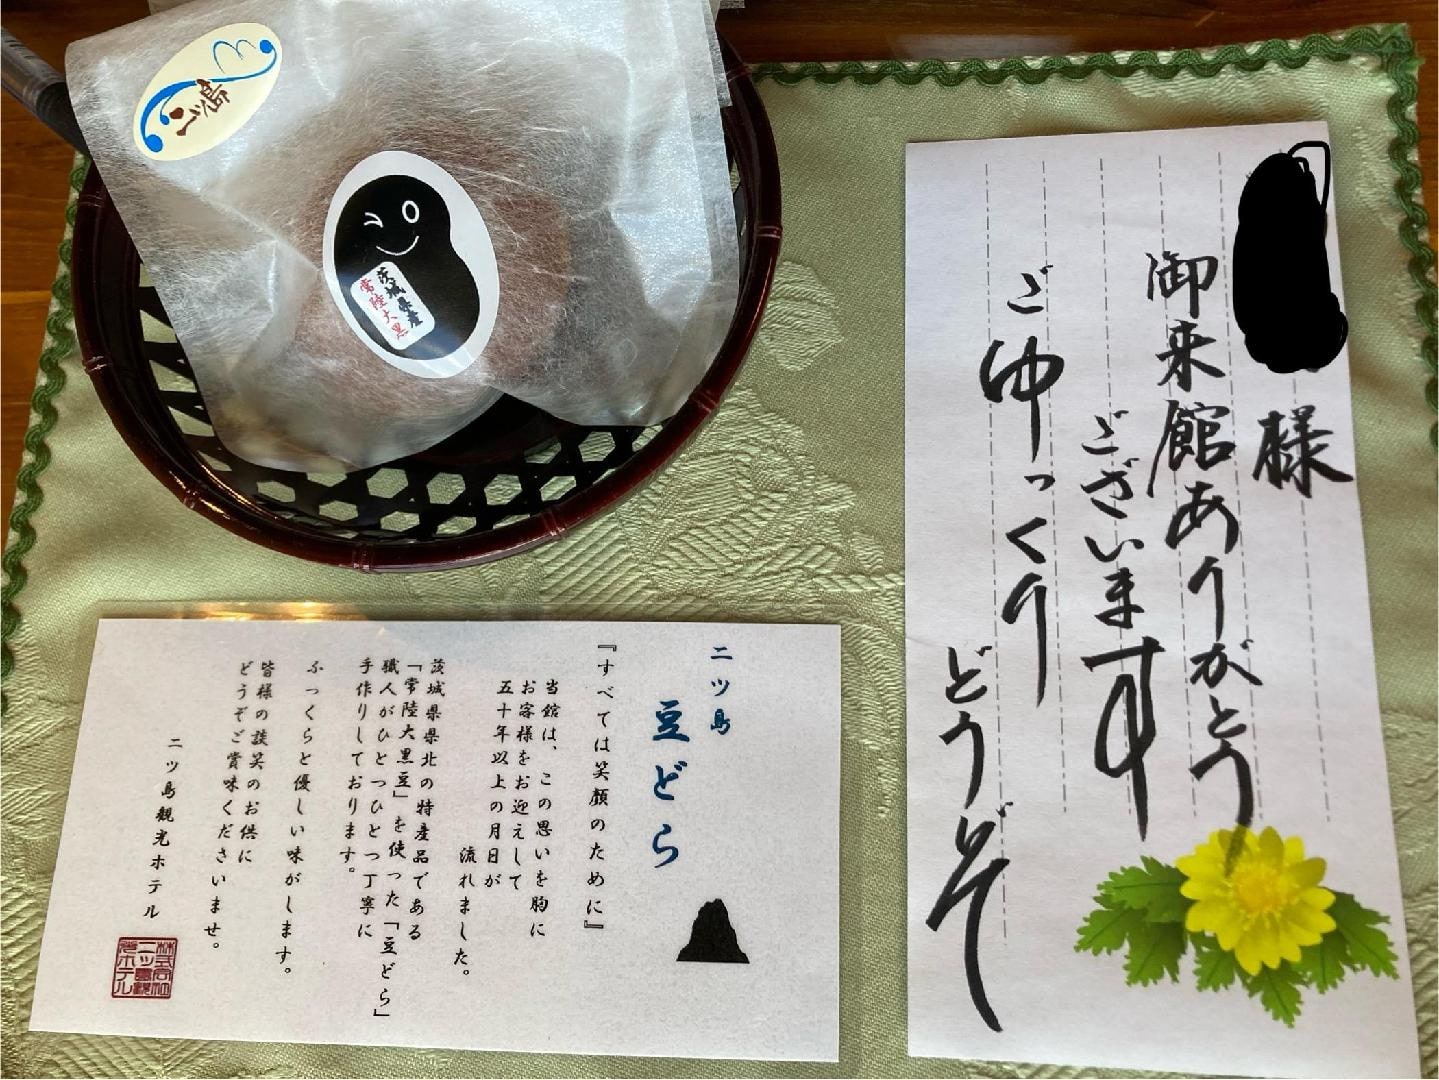 茨城県産
常陸大黒
二ツ島
豆どら
『すべては笑顔のために』
当館は、この思いを胸に
お客様をお迎えして
五十年以上の月日が
流れました。
茨城県県北の特産品である
「常陸大黒豆」を使った「豆どら」
職人がひとつひとつ丁寧に
手作りしております。
ふっくらと優しい味がします。
皆様の談笑のお供に
どうぞご賞味くださいませ。
二ツ島観光ホテル
様
御来館ありがとう
ございます
ごゆっくり
どうぞ